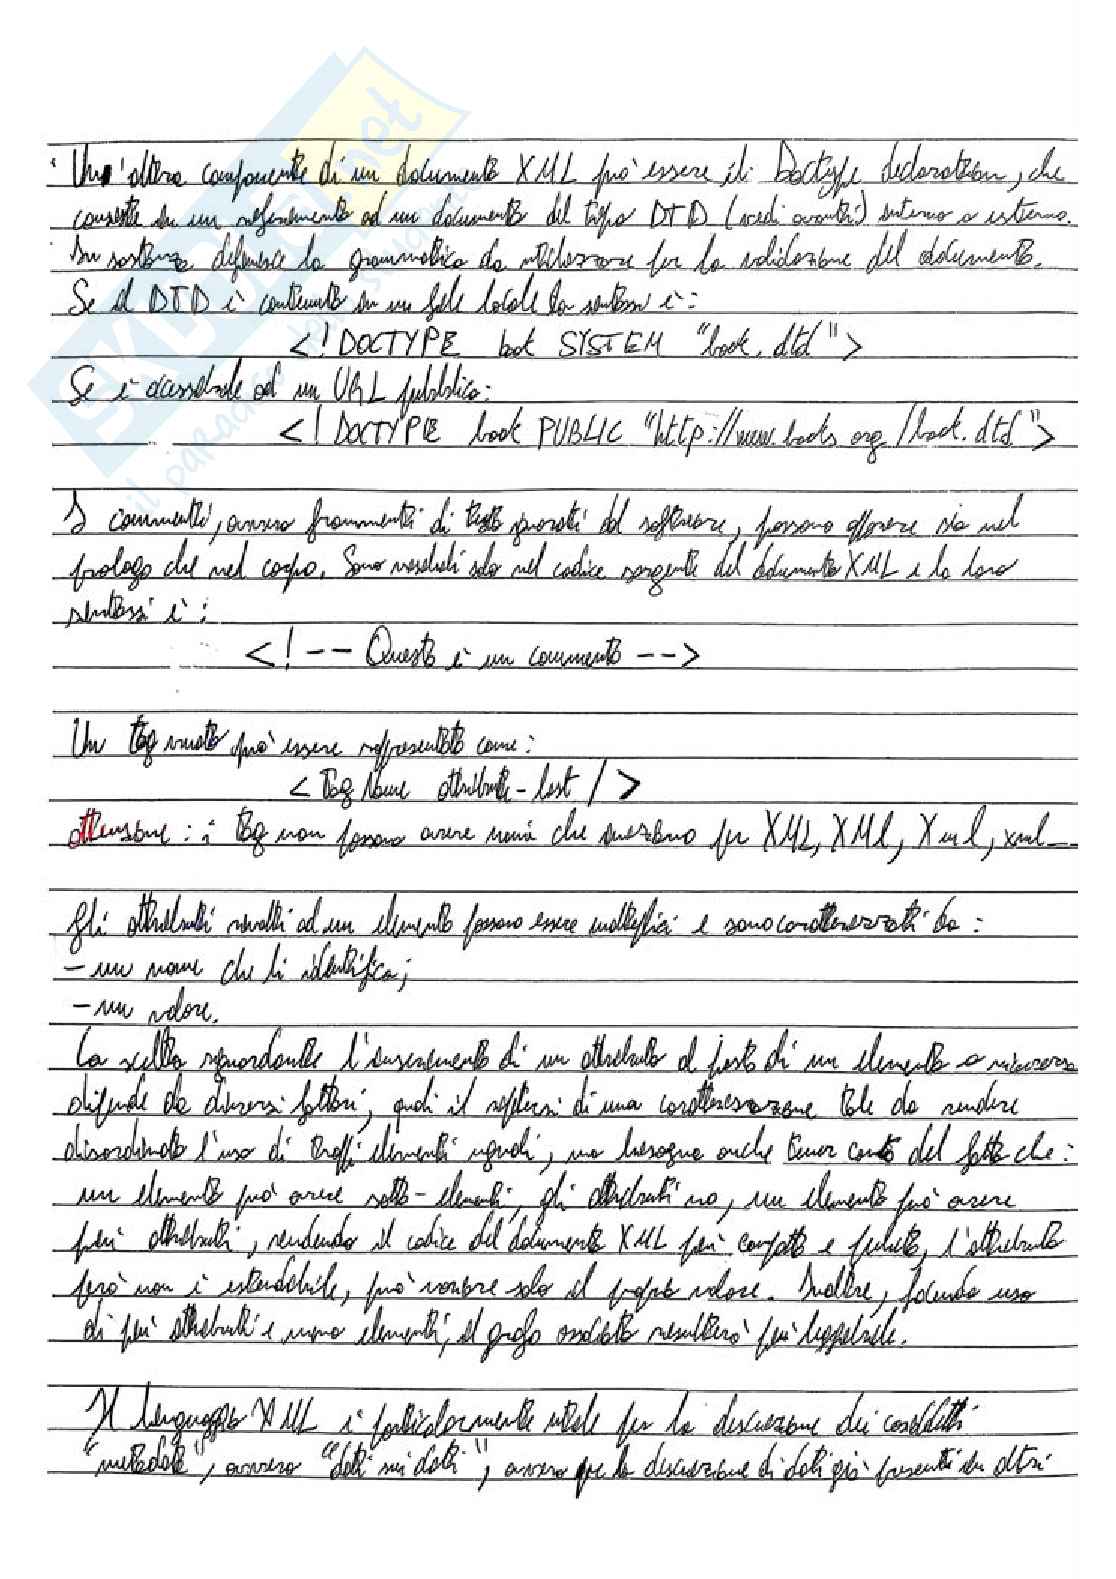 Un'altra componente di un documento XML può essere il Doctype declaration, che
consiste in un riferimento ad un documento del tipo DTD (vedi avanti) interno o esterno.
In sostanza definisce la grammatica da utilizzare per la validazione del documento.
Se il DTD è contenuto in un file locale la sintassi è:
<!DOCTYPE book SYSTEM "book.dtd">
Se è accessibile ad un URL pubblico:
<!DOCTYPE book PUBLIC "http://www.books.org/book.dtd">
I commenti, ovvero frammenti di testo ignorati dal software, possono apparire sia nel
prologo che nel corpo. Sono visibili solo nel codice sorgente del documento XML e la loro
sintassi è:
<!-- Questo è un commento -->
Un tag vuoto può essere rappresentato come:
<Tag Name attribute-list />
attenzione: i tag non possono avere nomi che iniziano per XML, XMl, Xml, xml...
Gli attributi rivolti ad un elemento possono essere molteplici e sono caratterizzati da:
- un nome che li identifica;
- un valore.
La scelta riguardante l'inserimento di un attributo al posto di un elemento o viceversa
dipende da diversi fattori, quali il ripetersi di una caratterizzazione tale da rendere
disordinato l'uso di troppi elementi uguali, ma bisogna anche tener conto del fatto che:
un elemento può avere sotto-elementi, gli attributi no, un elemento può avere
più attributi, rendendo il codice del documento XML più compatto e pulito, l'attributo
però non è estendibile, può variare solo il proprio valore. Inoltre, facendo uso
di più attributi e meno elementi, il grafo associato risulterà più leggibile.
Il linguaggio XML è particolarmente utile per la descrizione dei cosiddetti
"metadati", ovvero "dati sui dati", ovvero per la descrizione di dati già presenti in altri
SKUOLA.net
il paradiso dello studente